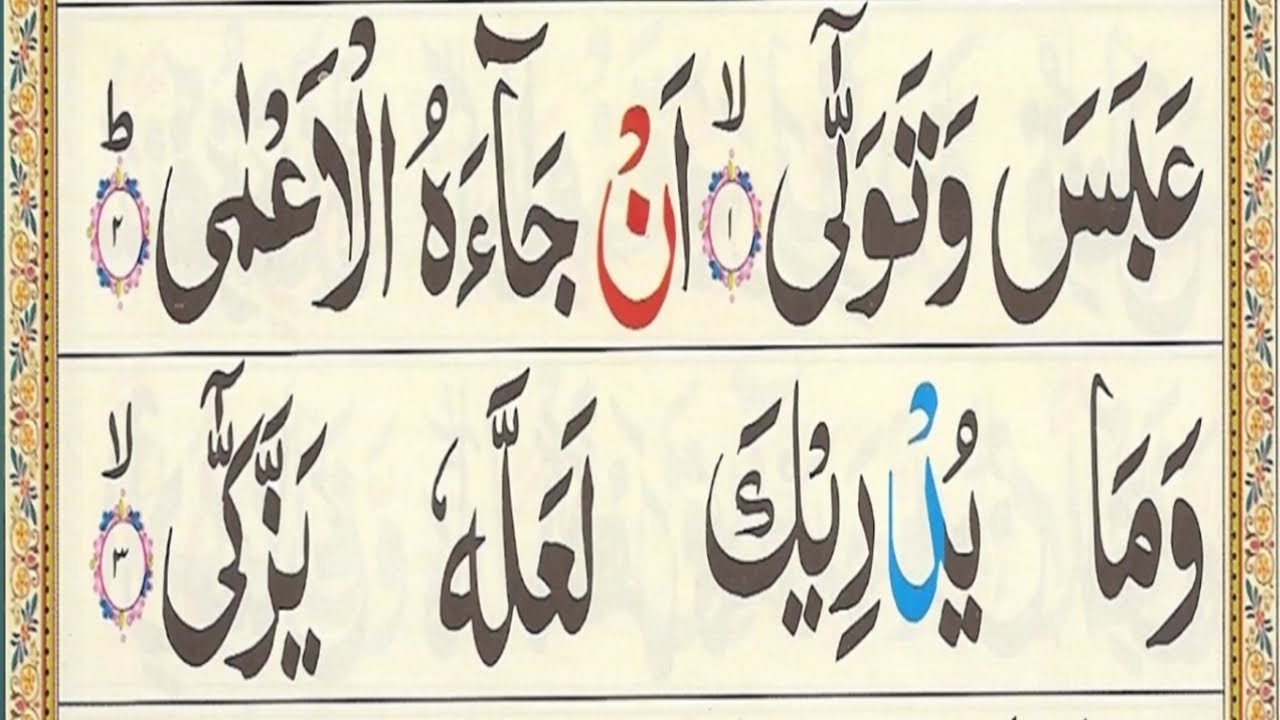 عَبَسَ وَتَوَلّٰۤى ۙ﴿۱﴾ اَنْ جَآءَهُ الْاَعْمٰى ؕ﴿۲﴾
وَمَا يُدْرِيْكَ لَعَلَّهٗ يَزَّكّٰۤى ۙ﴿۳﴾